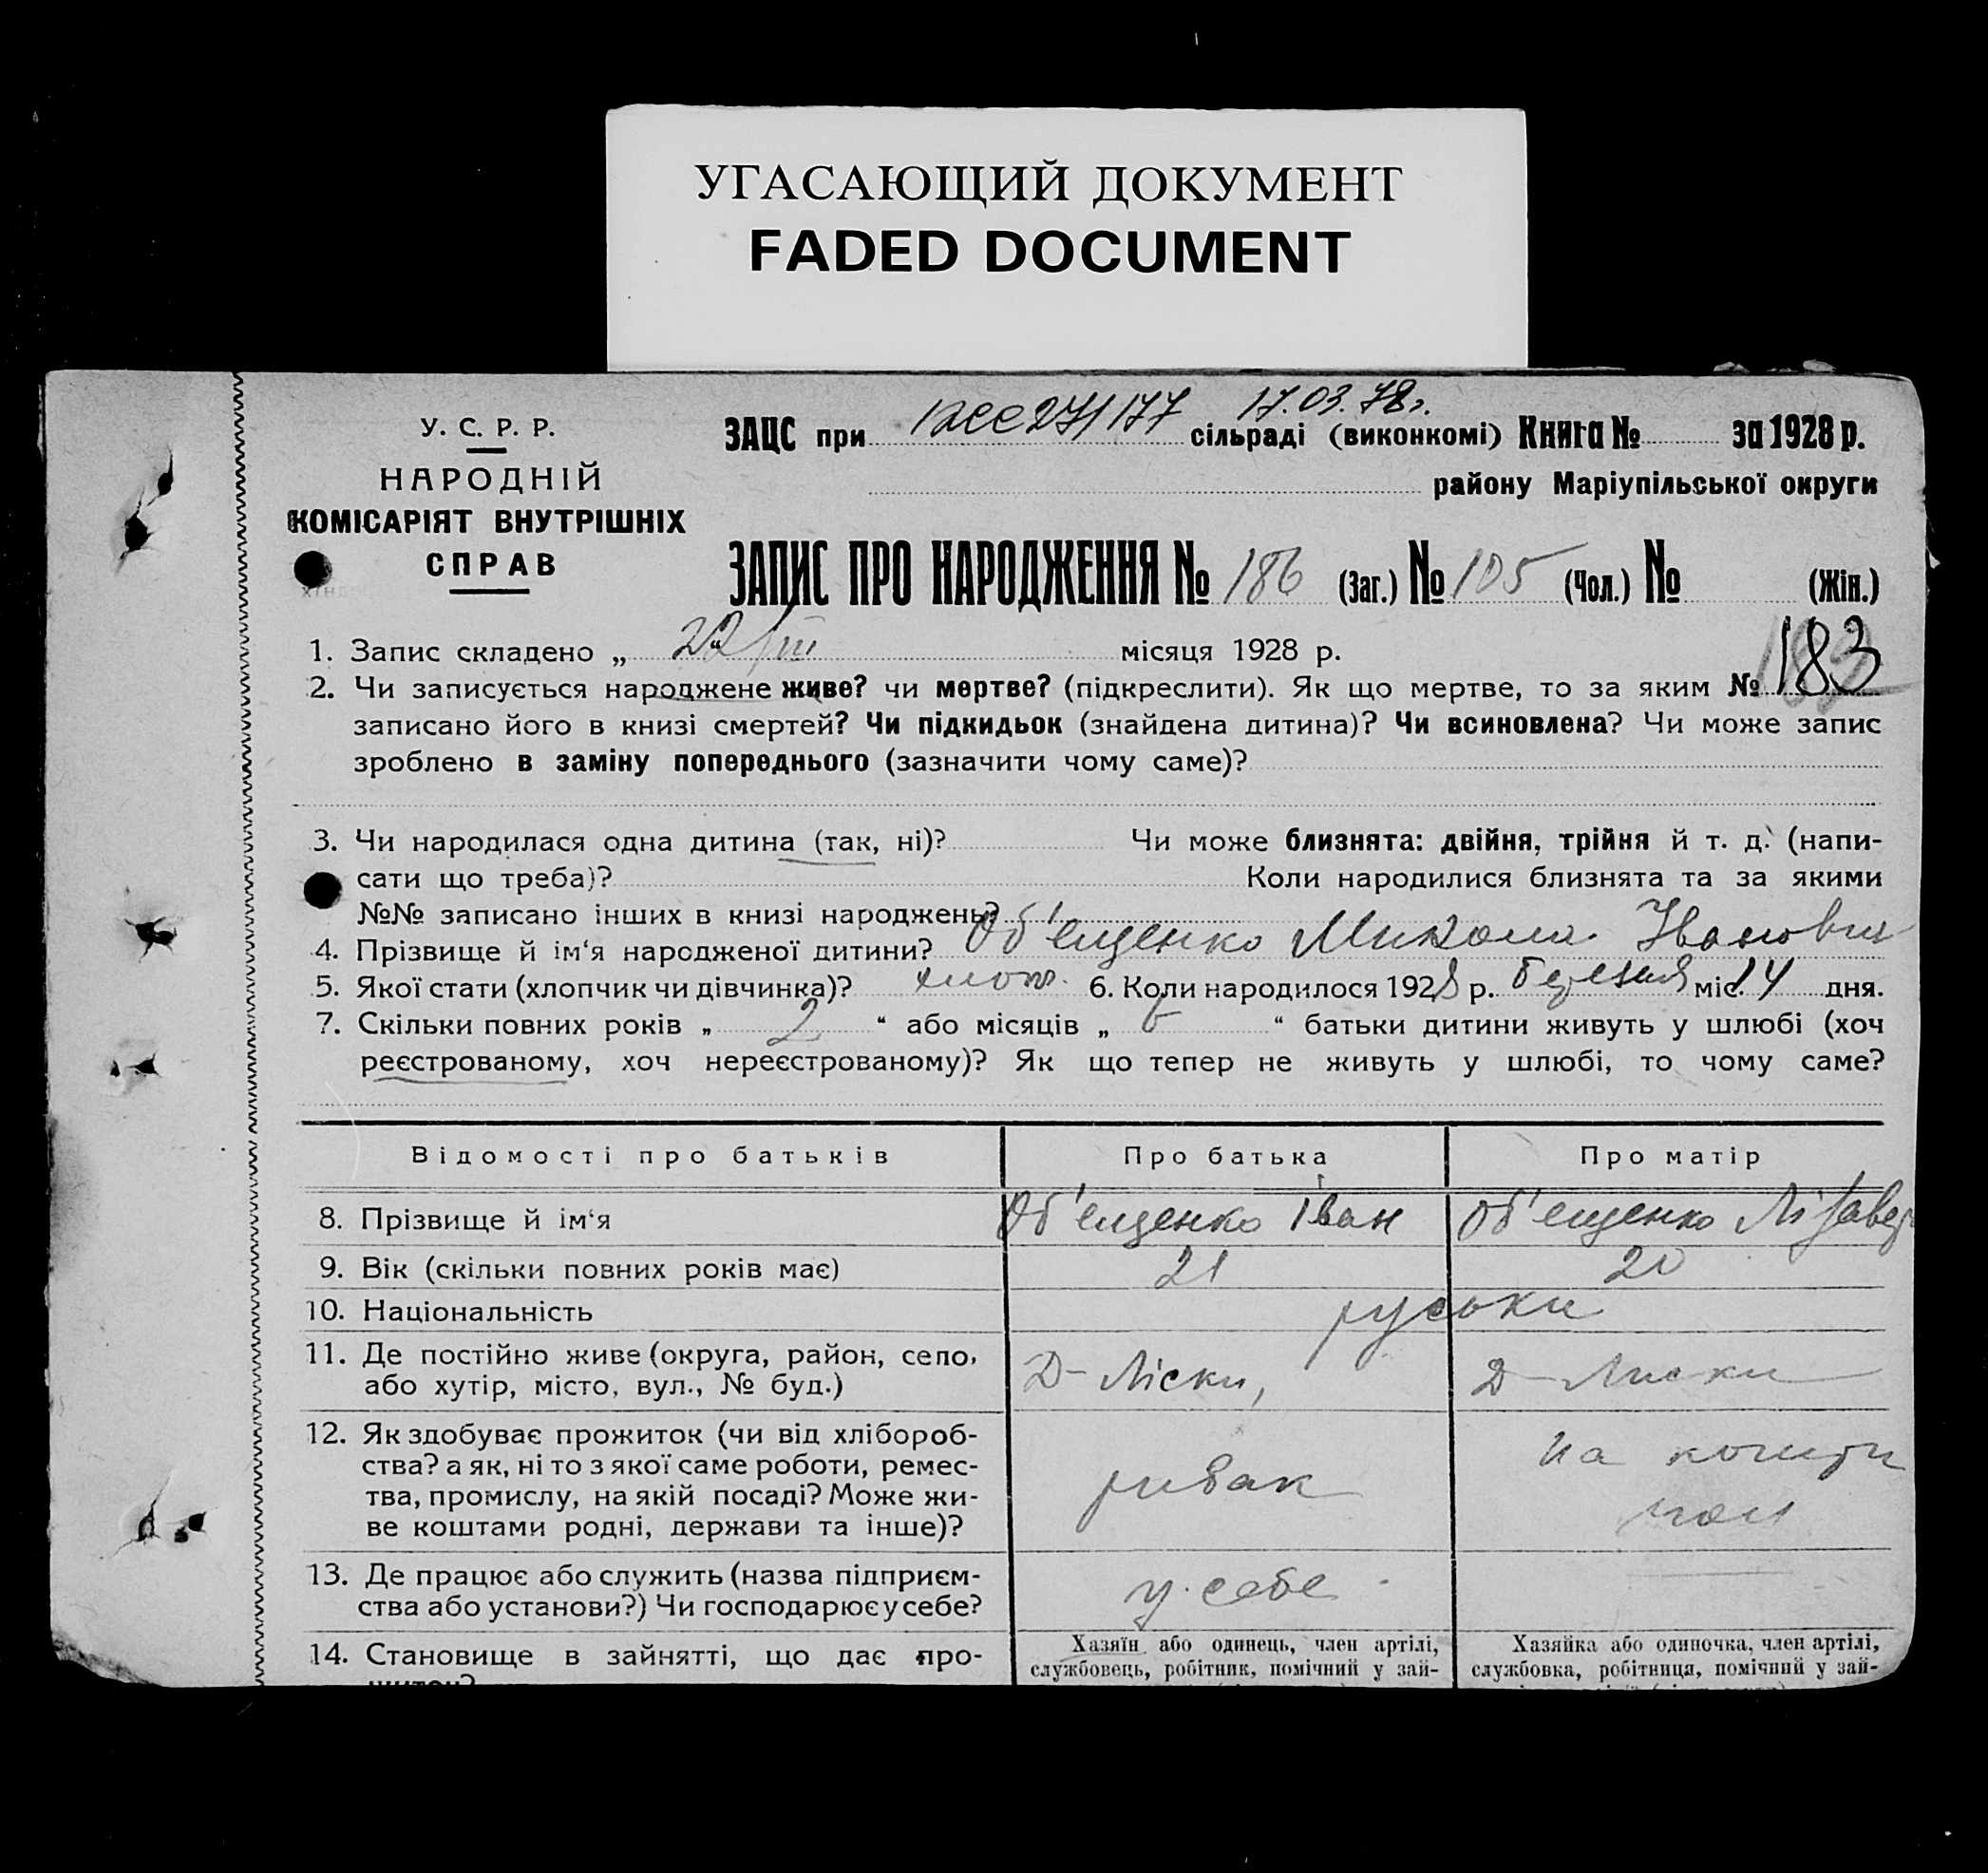 УГАСАЮЩИЙ ДОКУМЕНТ
FADED DOCUMENT
У. С. Р. Р.
НАРОДНІЙ
КОМІСАРІЯТ ВНУТРІШНІХ
СПРАВ
17.03.78г.
ЗАЦС при сільраді (виконкомі) Книга № за 1928 р.
району Маріупільської округи
ЗАПИС ПРО НАРОДЖЕННЯ № 186 (Заг.) № 105 (Чол.) № (Жін.)
1. Запис складено „ 22/III місяця 1928 р.
183
2. Чи записується народжене живе? чи мертве? (підкреслити). Як що мертве, то за яким №
записано його в книзі смертей? Чи підкидьок (знайдена дитина)? Чи всиновлена? Чи може запис
зроблено в заміну попереднього (зазначити чому саме)?
3. Чи народилася одна дитина (так, ні)? Чи може близнята: двійня, трійня й т. д. (напи-
сати що треба)? Коли народилися близнята та за якими
№№ записано інших в книзі народжень?
4. Прізвище й ім‘я народженої дитини? Об'єщенко Микола Іванович
5. Якої стати (хлопчик чи дівчинка)? хлоп. 6. Коли народилося 1928 р. березня міс. 14 дня.
7. Скільки повних років „ 2 “ або місяців „ 6 “ батьки дитини живуть у шлюбі (хоч
реєстрованому, хоч нереєстрованому)? Як що тепер не живуть у шлюбі, то чому саме?
Відомості про батьків Про батька Про матір
8. Прізвище й ім‘я Об'єщенко Іван Об'єщенко Лізавет
9. Вік (скільки повних років має) 21 20
10. Національність руськи
11. Де постійно живе (округа, район, село,
або хутір, місто, вул., № буд.) Д- Ліски, Д- Лиски
12. Як здобуває прожиток (чи від хлібороб-
ства? а як, ні то з якої саме роботи, ремес-
тва, промислу, на якій посаді? Може жи-
ве коштами родні, держави та інше)? рибак на кошти
13. Де працює або служить (назва підприєм-
ства або установи?) Чи господарює у себе? у себе
14. Становище в зайнятті, що дає про-
Хазяїн або одинець, член артілі,
службовець, робітник, помічний у зай-
Хазяйка або одиночка, член артілі,
службовка, робітниця, помічний у зай-